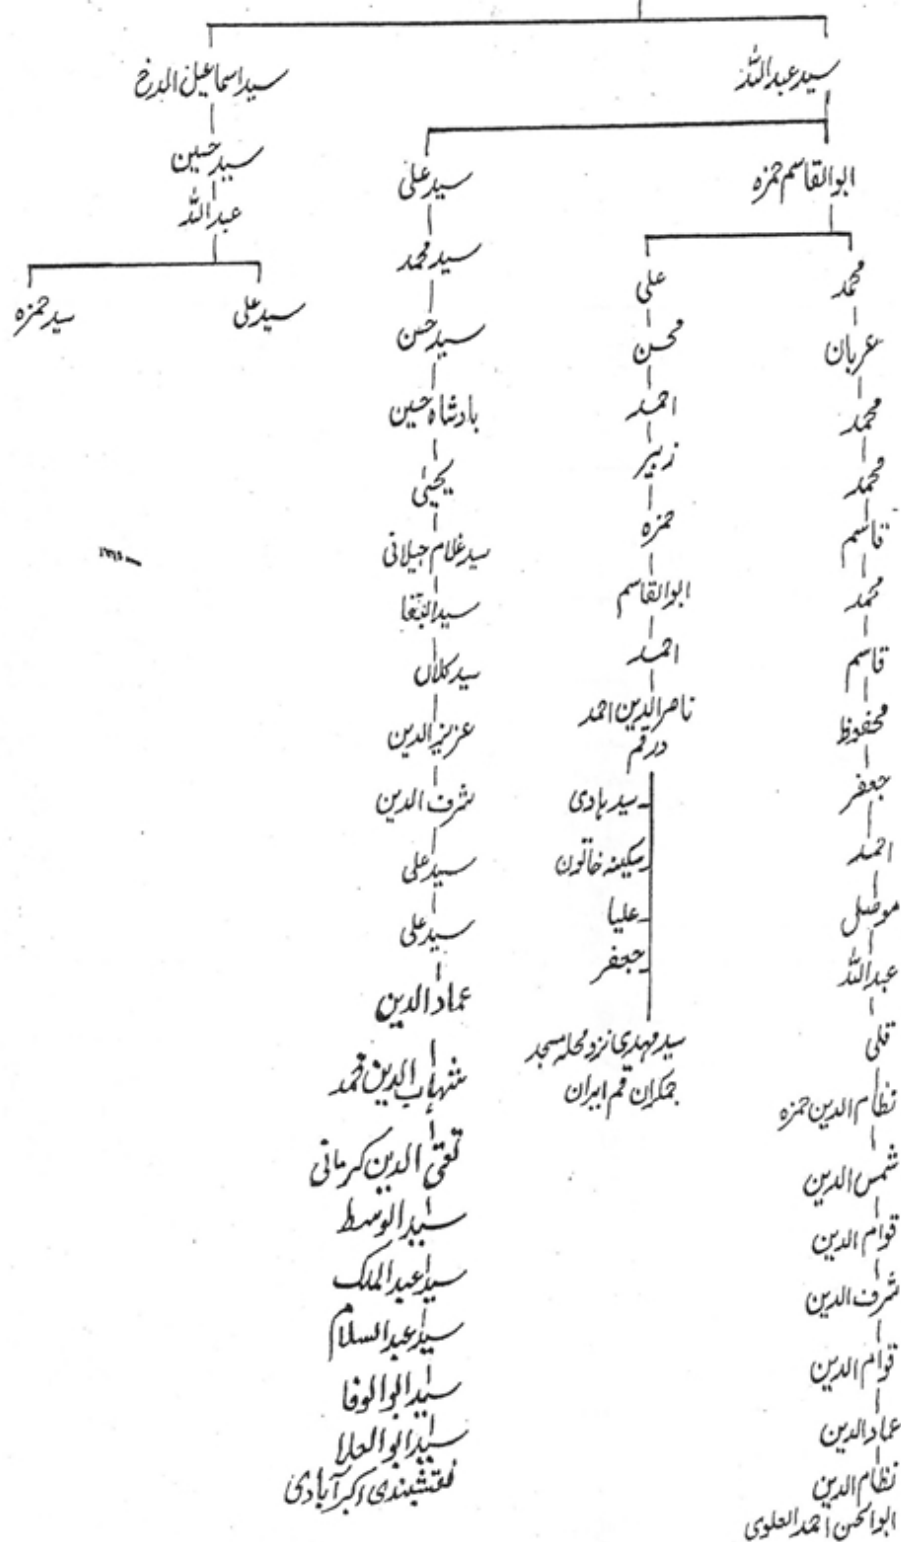 سید عبداللہ
ابوالقاسم حمزہ
محمد
عربان
محمد
محمد
قاسم
محمد
قاسم
محفوظ
جعفر
احمد
موصل
عبداللہ
قلی
نظام الدین حمزہ
شمس الدین
قوام الدین
شرف الدین
قوام الدین
عمادالدین
نظام الدین
ابوالحسن احمد العلوی
علی
محسن
احمد
زبیر
حمزہ
ابوالقاسم
احمد
ناصرالدین احمد
در قم
سید ہادی
سکینہ خاتون
علیا
جعفر
سید مہدی نزد محلہ مسجد
جمکران قم ایران
سید علی
سید محمد
سید حسن
بادشاہ حسین
یحییٰ
سید غلام جیلانی
سید
سید کلاں
عزیز الدین
شرف الدین
سید علی
سید علی
عماد الدین
شہاب الدین محمد
تقی الدین کرمانی
سید الوسط
سید عبدالملک
سید عبدالسلام
سید ابوالوفا
سید ابوالعلا
نقشبندی اکبرآبادی
سید اسماعیل
سید حسین
عبداللہ
سید علی
سید حمزہ